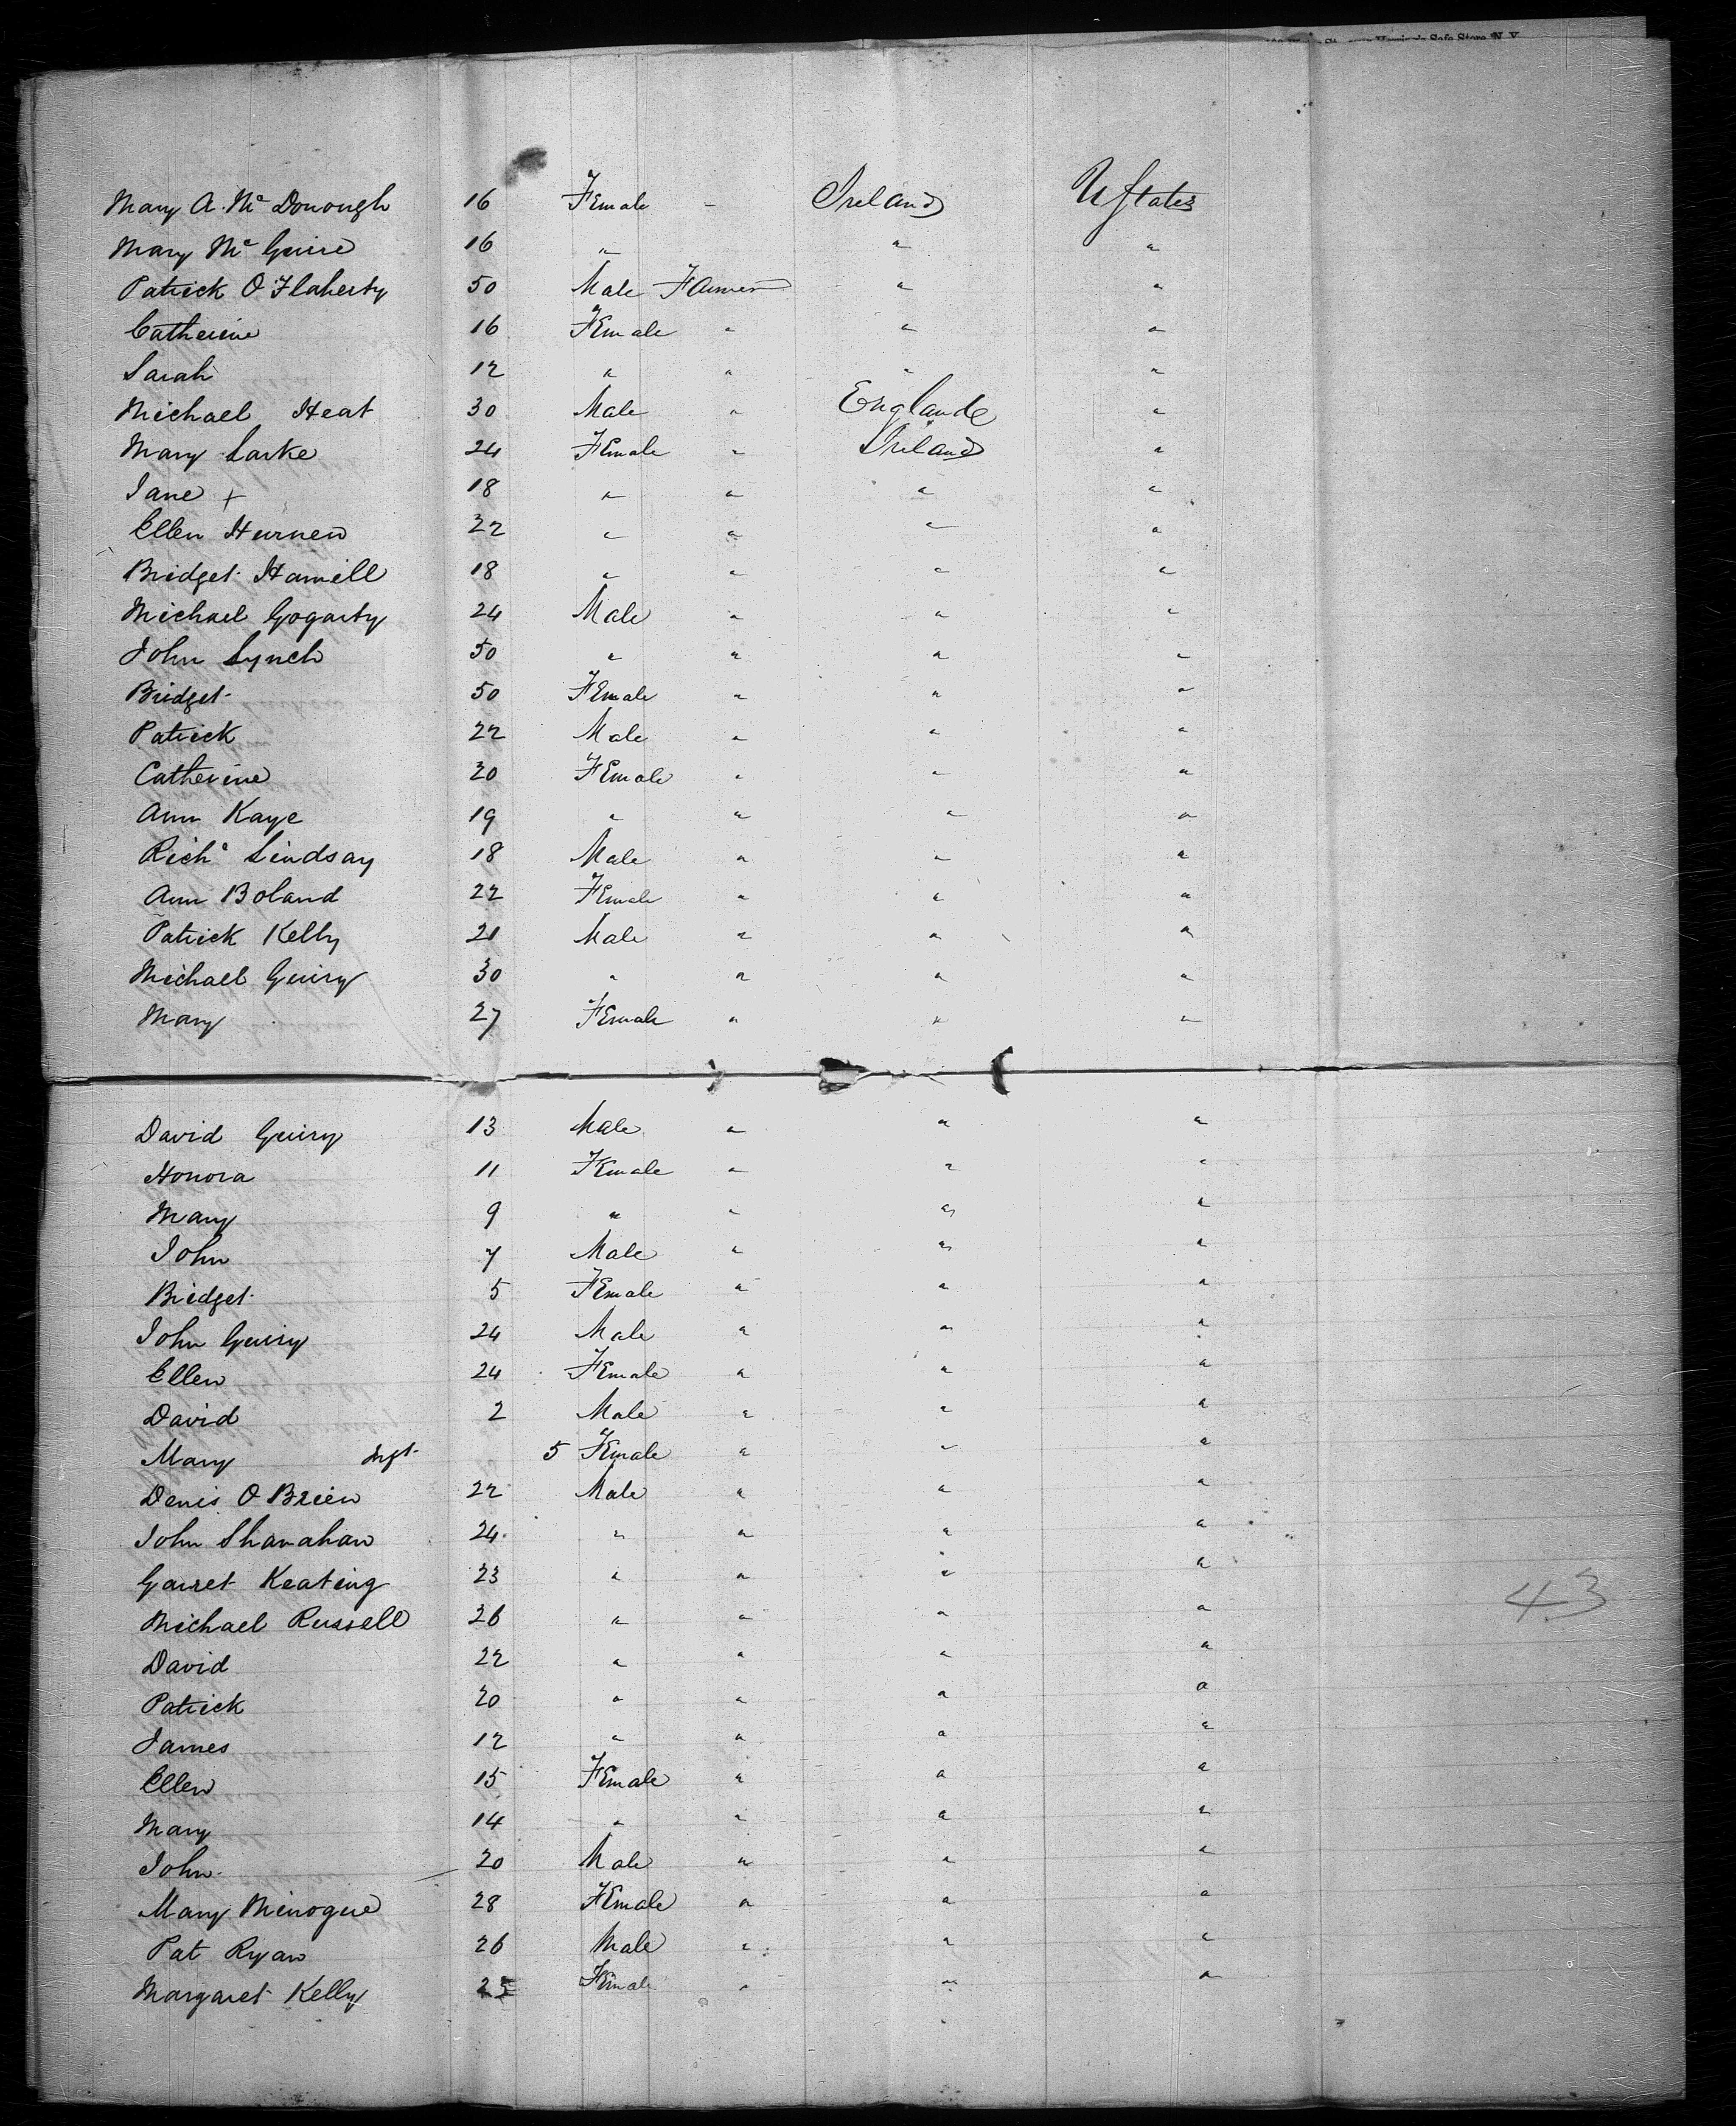 Harring's Safe Store, N. Y.
Mary A. Mc Donough 16 Female - Ireland U States
Mary Mc Guire 16 " " "
Patrick O'Flaherty 50 Male Farmer " "
Catherine 16 Female " " "
Sarah 12 " " " "
Michael Heat 30 Male " England "
Mary Larke 24 Female " Ireland "
Jane + 18 " " " "
Ellen Hurnen 22 " " " "
Bridget Hamill 18 " " " "
Michael Gogarty 24 Male " " "
John Lynch 50 " " " "
Bridget 50 Female " " "
Patrick 22 Male " " "
Catherine 20 Female " " "
Ann Kaye 19 " " " "
Richd Lindsay 18 Male " " "
Ann Boland 22 Female " " "
Patrick Kelly 21 Male " " "
Michael Guiry 30 " " " "
Mary 27 Female " " "
David Guiry 13 Male " " "
Honora 11 Female " " "
Mary 9 " " " "
John 7 Male " " "
Bridget 5 Female " " "
John Guiry 24 Male " " "
Ellen 24 Female " " "
David 2 Male " " "
Mary Inft 5 Female " " "
Denis O Brien 22 Male " " "
John Shanahan 24 " " " "
Garret Keating 23 " " " "
Michael Russell 26 " " " "
David 22 " " " "
Patrick 20 " " " "
James 12 " " " "
Ellen 15 Female " " "
Mary 14 " " " "
John 20 Male " " "
Mary Minogue 28 Female " " "
Pat Ryan 26 Male " " "
Margaret Kelly 25 Female " " "
43